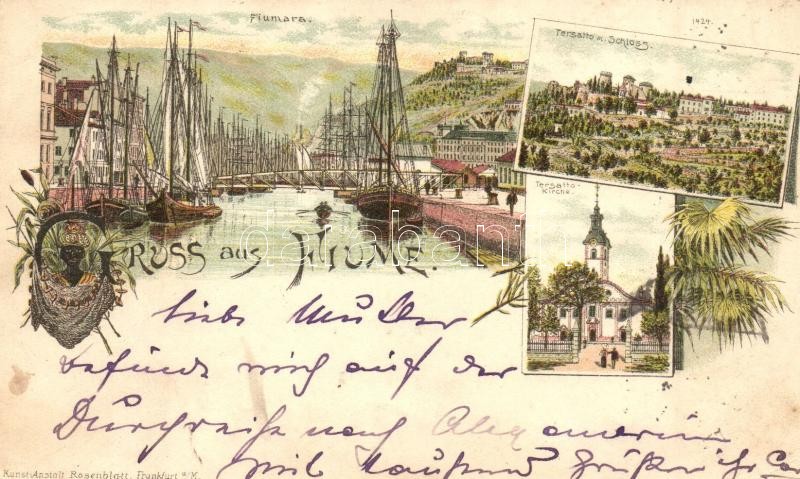 Fiumara.
1424.
Tersatto m. Schloss.
Tersatto-
Kirche.
Gruss aus Fiume.
liebe Mutter
befinde mich auf der
Durchreise nach
mit tausend Grüßen ihr
Kunst-Anstalt Rosenblatt, Frankfurt a/M.
darabanth